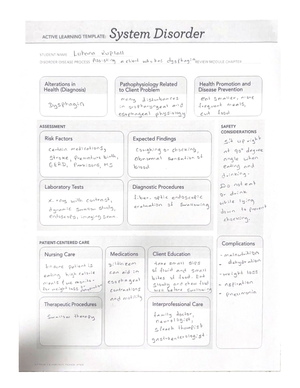 ACTIVE LEARNING TEMPLATE: System Disorder
STUDENT NAME
DISORDER/DISEASE PROCESS Assisting a client who has dysphagia REVIEW MODULE CHAPTER
Alterations in
Health (Diagnosis)
Dysphagia
Pathophysiology Related
to Client Problem
many disturbances
in oropharyngeal and
esophageal physiology
Health Promotion and
Disease Prevention
Eat smaller, more
frequent meals,
cut food
ASSESSMENT
SAFETY
CONSIDERATIONS
Risk Factors
certain medications,
Stroke, Premature birth,
GERD, Parkinsons, MS
Expected Findings
Coughing or choking,
abnormal sensation of
food
Sit upright
at 90° degree
angle when
eating and
drinking.
Do not eat
or drink
while lying
down to prevent
choking.
Laboratory Tests
X-ray with contrast,
dynamic swallow study,
endoscopy, imaging scan
Diagnostic Procedures
fiber optic endoscopic
evaluation of swallowing
PATIENT-CENTERED CARE
Complications
- malnutrition
- dehydration
- weight loss
- aspiration
- pneumonia
Nursing Care
ensure patient is
eating high calorie
meals and monitor
for weight loss
Medications
can aid in
esophageal
contractions
and motility
Client Education
take small sips
of fluid and small
bites of food. Eat
slowly and chew food
before swallowing
Therapeutic Procedures
Swallow therapy
Interprofessional Care
family doctor,
neurologist,
speech therapist
gastroenterologist